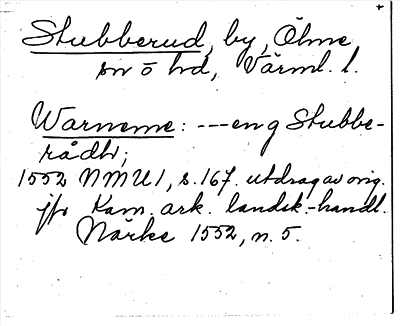 Stubberud, by, Ölme
sn o hd, Värml. l.
Warneme: --- en g Stubbe-
rådh;
1552 NMU 1, s. 167. utdrag av orig.
jfr Kam. ark. landsk.-handl.
Närke 1552, n. 5.